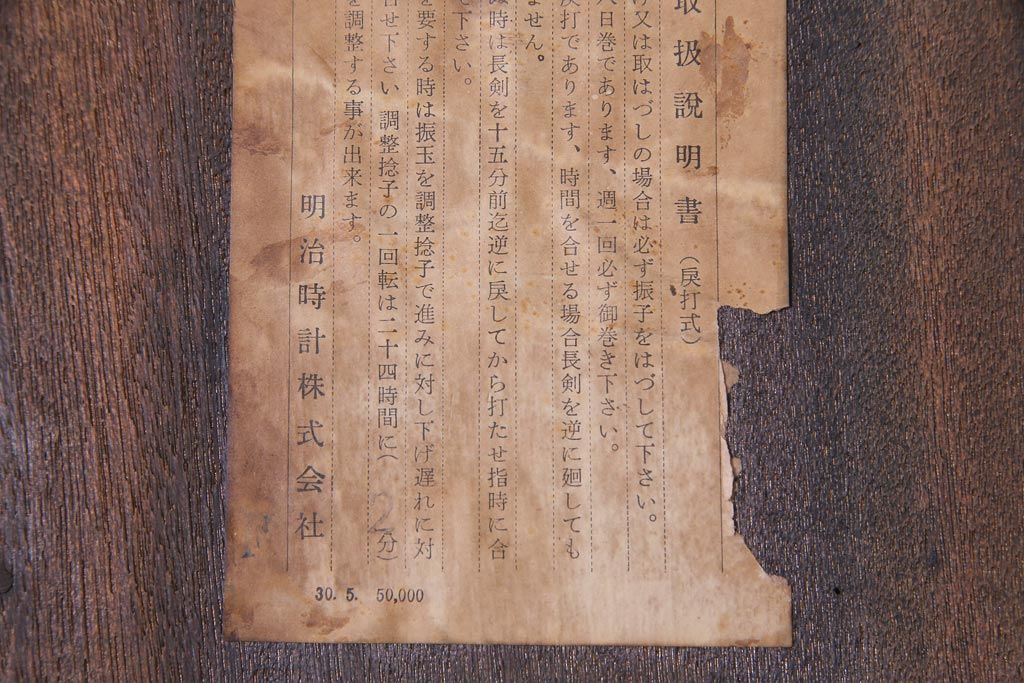 取扱説明書(戻打式)
け又は取はづしの場合は必ず振子をはづして下さい。
八日巻であります、週一回必ず御巻き下さい。
戻打であります、時間を合せる場合長剣を逆に廻しても
ません。
時は長剣を十五分前迄逆に戻してから打たせ指時に合
て下さい。
を要する時は振玉を調整捻子で進みに対し下げ遅れに対
合せ下さい 調整捻子の一回転は二十四時間に(2分)
を調整する事が出来ます。
明治時計株式会社
30. 5. 50,000